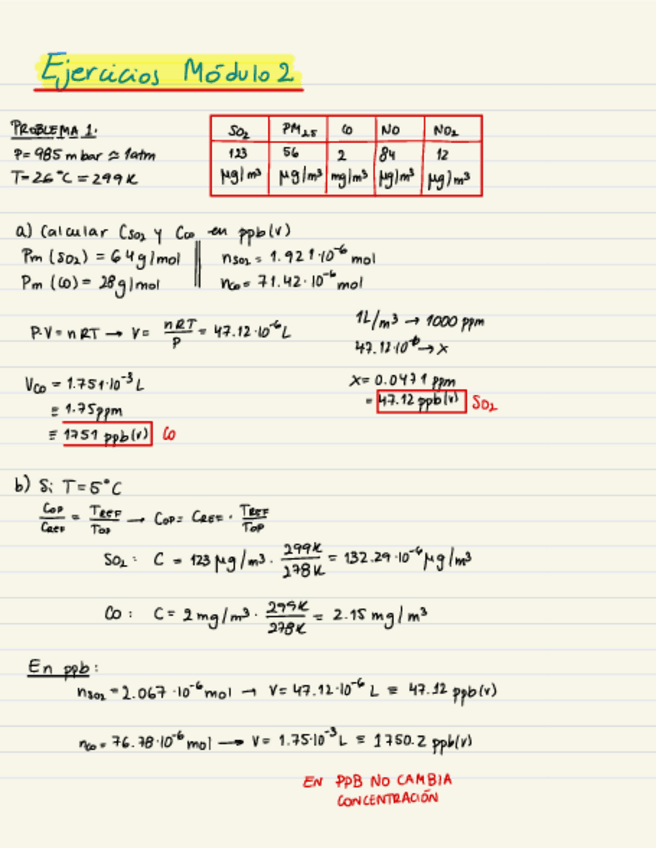 Ejercicios Módulo 2
PROBLEMA 1.
P= 985 mbar ≈ 1atm
T= 26°C = 299K
SO₂ PM₂.₅ CO NO NO₂
123 56 2 84 12
µg/m³ µg/m³ mg/m³ µg/m³ µg/m³
a) Calcular CSO₂ y CCO en ppb(v)
Pm (SO₂) = 64g/mol nSO₂ = 1.921·10⁻⁶ mol
Pm (CO) = 28g/mol nCO = 71.42·10⁻⁶ mol
P·V = nRT → V = nRT/P = 47.12·10⁻⁶ L
1L/m³ → 1000 ppm
47.12·10⁻⁶ → x
VCO = 1.751·10⁻³ L
≡ 1.75ppm
≡ 1751 ppb(v) CO
x = 0.0471 ppm
= 47.12 ppb(v) SO₂
b) Si T = 5°C
COP/CREF = TREF/TOP → COP = CREF · TREF/TOP
SO₂ : C = 123 µg/m³ · 299K/278K = 132.29·10⁻⁶ µg/m³
CO : C = 2 mg/m³ · 299K/278K = 2.15 mg/m³
En ppb :
nSO₂ = 2.067·10⁻⁶ mol → V = 47.12·10⁻⁶ L ≡ 47.12 ppb(v)
nCO = 76.78·10⁻⁶ mol → V = 1.75·10⁻³ L ≡ 1750.2 ppb(v)
EN PPB NO CAMBIA
CONCENTRACIÓN